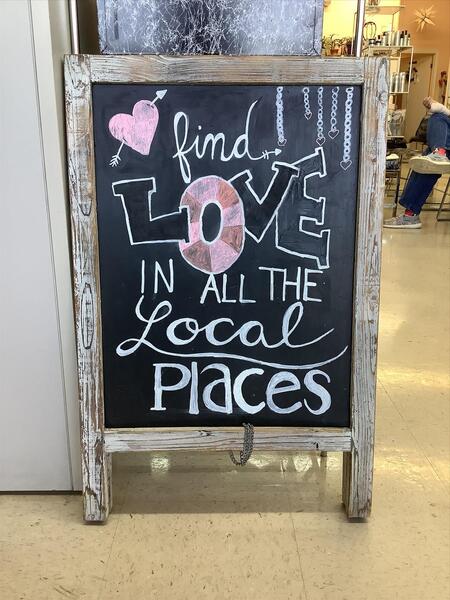 find
LOVE
IN ALL THE
Local
Places